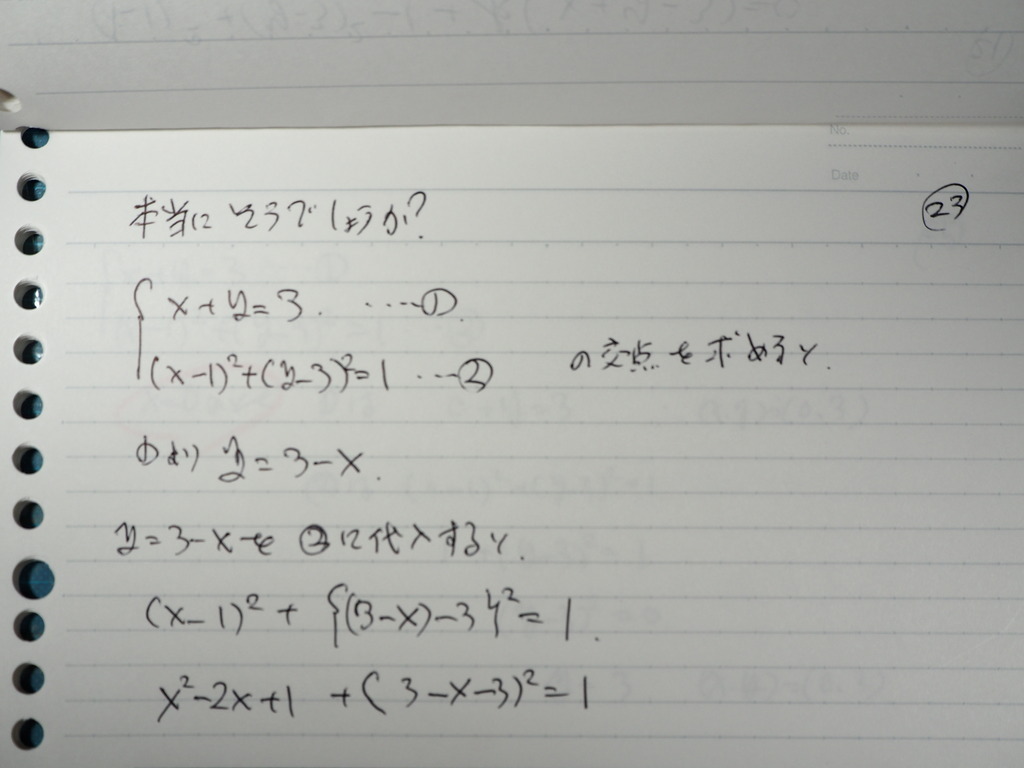 No.
Date
㉓
本当にそうでしょうか?
x+y=3. ‥‥①.
(x-1)²+(y-3)²=1 ‥‥② の交点を求めると.
①より y=3-x.
y=3-xを②に代入すると.
(x-1)²+{(3-x)-3}²=1.
x²-2x+1+(3-x-3)²=1